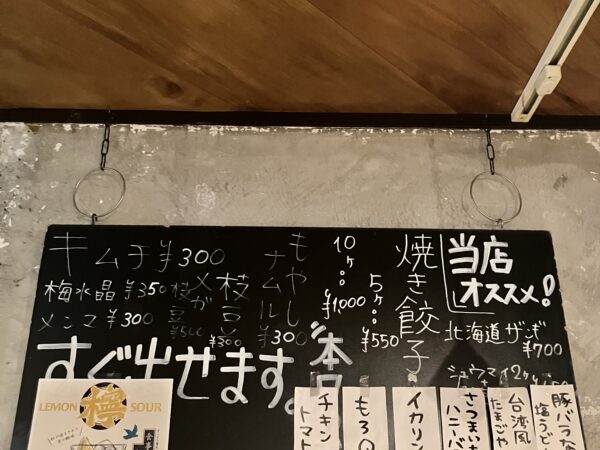 当店
オススメ!
北海道ザンギ
¥700
焼き餃子
5ヶ
¥550
10ヶ
¥1,000
もやし
ナムル
¥300
枝豆
¥300
メガ
枝豆
¥500
キムチ ¥300
梅水晶 ¥350
メンマ ¥300
すぐ出せます。
シュウマイ 2ヶ
豚バラ
塩うど
台湾風
たまごや
さつまい
ハニーバ
イカリン
もろ
チキン
トマト
LEMON SOUR